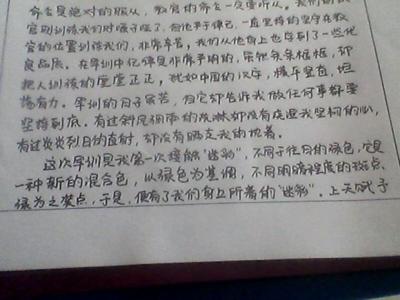 命令是绝对的服从，教官的命令一定要听从。我们的教
官训练我们对嗓子哑了，但他严于律己，一直坚持的坚守在教
官的位置训练我们，非常辛苦，我们从他身上也学到了一些优
良品质。在军训中纪律是非常严明的，条条框框，却
把人训练的堂堂正正，犹如中国的汉字，横平竖直，坦
荡有力。军训的日子虽苦，但它却告诉我做任何事都要
坚持到底。有过斜风细雨的泼淋都没有浇退我坚挺的心，
有过炎炎烈日的直射，却没有晒去我的执着。
这次军训是我第一次接触“迷彩”，不同于往日的绿色，它是
一种新的混合色，以绿色为基调，不同明暗程度的斑点、
绿为之装点，于是，便有了我们身上所着的“迷彩”。上天赋予